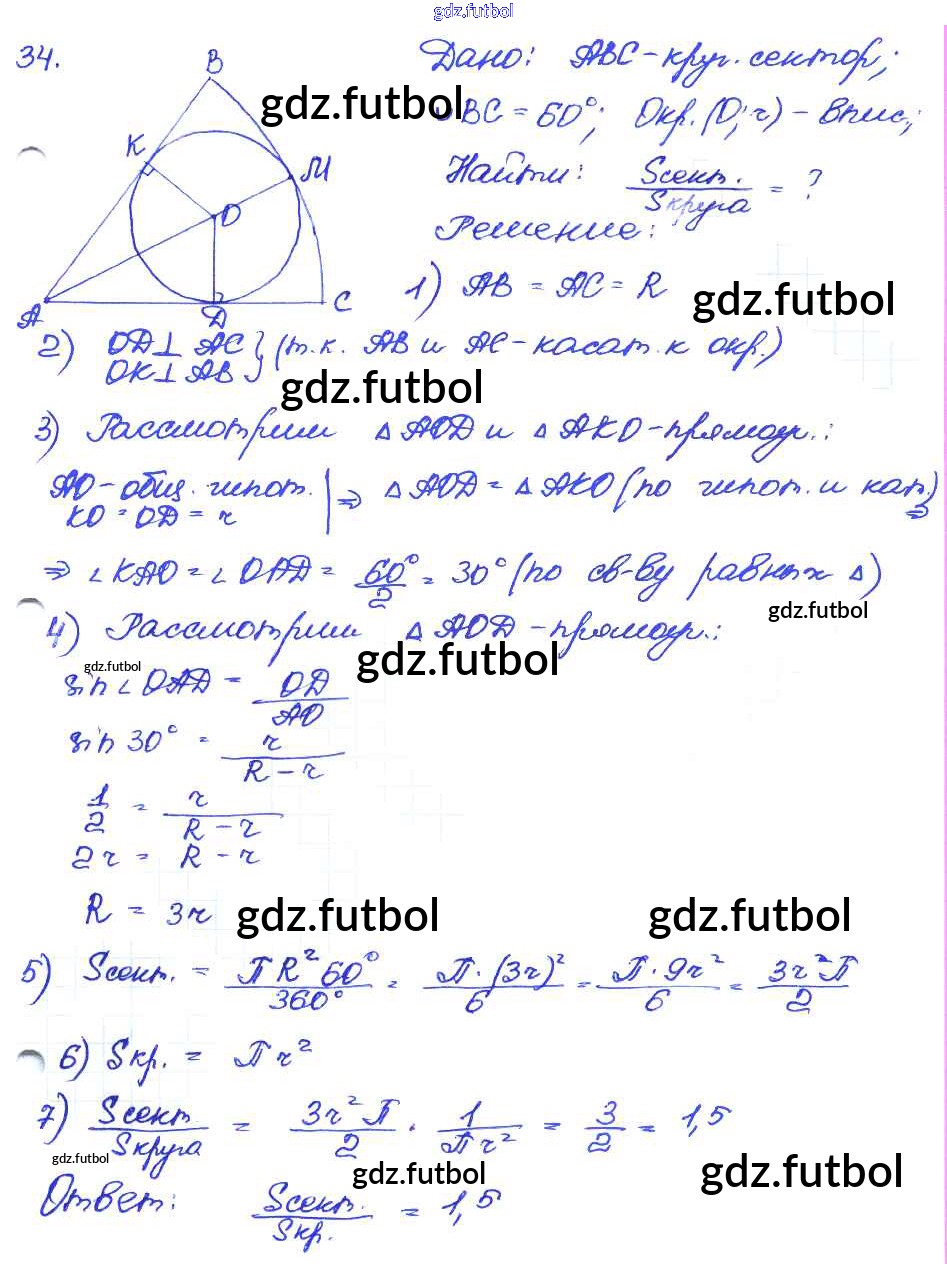 gdz.futbol
34.
Дано: ABC - круг. сектор;
gdz.futbol
∪BC = 60°; Окр.(O; r) - впис.;
Найти: Sсект. / Sкруга = ?
Решение:
B
K
M
O
A
D
C
1) AB = AC = R
gdz.futbol
2) OD ⊥ AC
OK ⊥ AB } (т.к. AB и AC - касат. к окр.)
gdz.futbol
3) Рассмотрим △AOD и △AKO - прямоуг.:
AO - общ. гипот.
KO = OD = r | ⇒ △AOD = △AKO (по гипот. и кат.) ⇒
⇒ ∠KAO = ∠OAD = 60°/2 = 30° (по св-ву равных △)
gdz.futbol
4) Рассмотрим △AOD - прямоуг.:
gdz.futbol
gdz.futbol
sin∠OAD = OD / AO
sin 30° = r / (R - r)
1/2 = r / (R - r)
2r = R - r
R = 3r
gdz.futbol
gdz.futbol
5) Sсект. = πR² 60° / 360° = π·(3r)² / 6 = π·9r² / 6 = 3r²π / 2
6) Sкр. = πr²
7) Sсект / Sкруга = 3r²π / 2 · 1 / πr² = 3/2 = 1,5
gdz.futbol
gdz.futbol
gdz.futbol
Ответ: Sсект. / Sкр. = 1,5